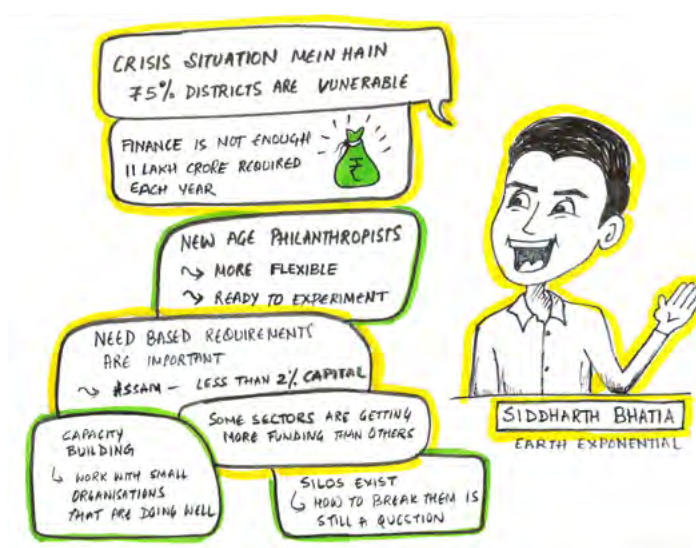 CRISIS SITUATION MEIN HAIN
75% DISTRICTS ARE VUNERABLE
FINANCE IS NOT ENOUGH
11 LAKH CRORE REQUIRED
EACH YEAR
₹
NEW AGE PHILANTHROPISTS
↝ MORE FLEXIBLE
↝ READY TO EXPERIMENT
NEED BASED REQUIREMENTS
ARE IMPORTANT
↝ ASSAM – LESS THAN 2% CAPITAL
SOME SECTORS ARE GETTING
MORE FUNDING THAN OTHERS
CAPACITY
BUILDING
↳ WORK WITH SMALL
ORGANISATIONS
THAT ARE DOING WELL
SILOS EXIST
↳ HOW TO BREAK THEM IS
STILL A QUESTION
SIDDHARTH BHATIA
EARTH EXPONENTIAL